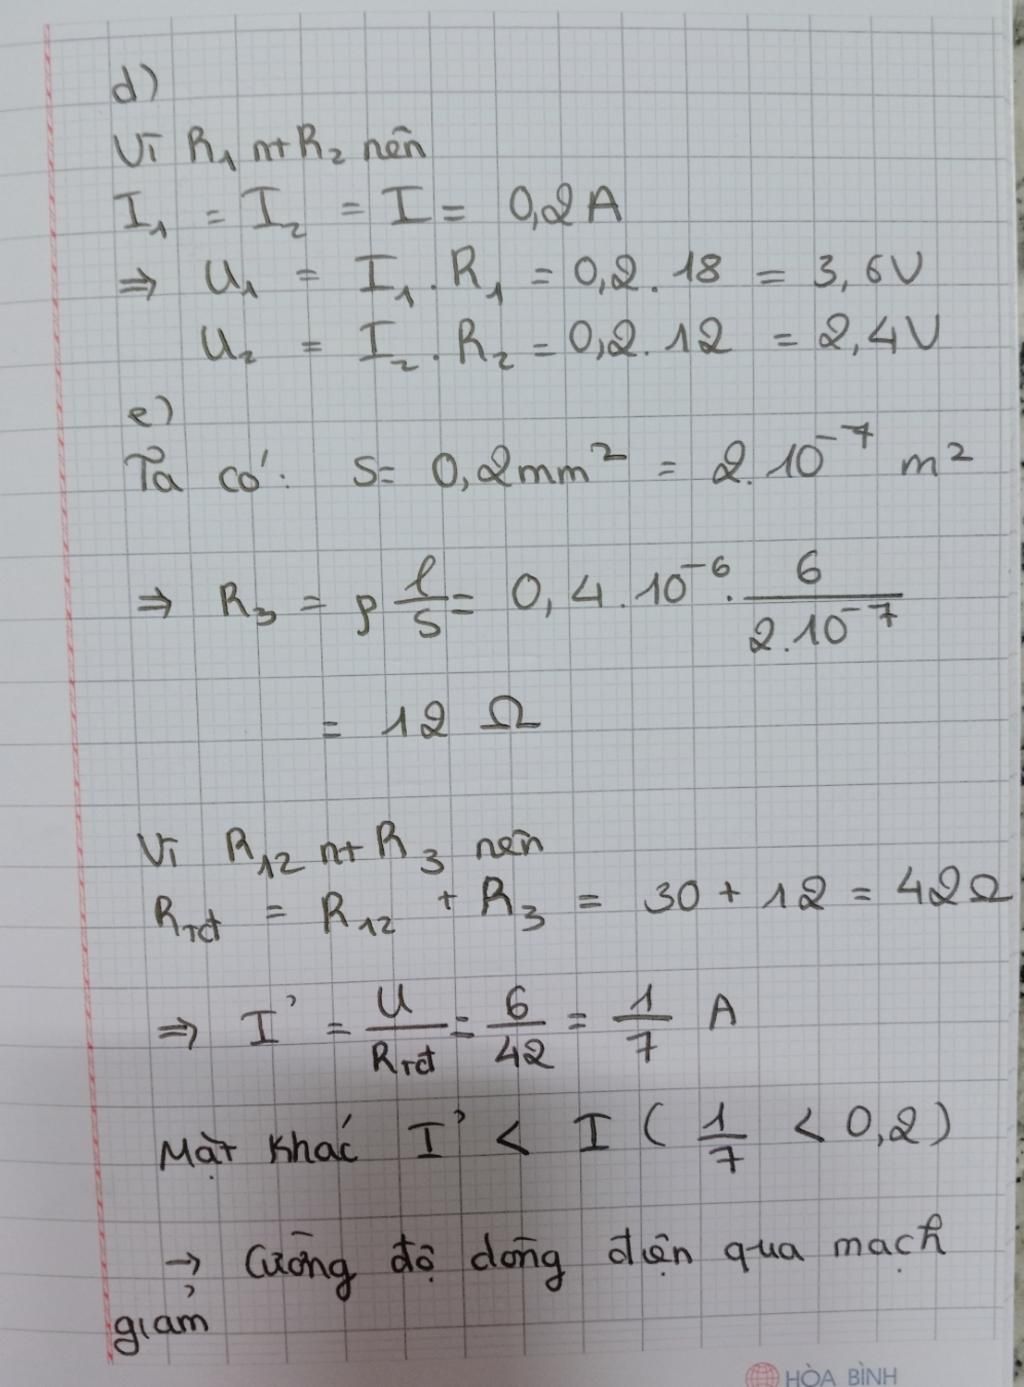 d)
Vì R₁ nt R₂ nên
I₁ = I₂ = I = 0,2A
⇒ U₁ = I₁. R₁ = 0,2. 18 = 3,6V
U₂ = I₂. R₂ = 0,2. 12 = 2,4V
e)
Ta có: S= 0,2mm² = 2.10⁻⁷ m²
⇒ R₃ = ρ l/S = 0,4.10⁻⁶. 6/2.10⁻⁷
= 12 Ω
Vì R₁₂ nt R₃ nên
Rтđ = R₁₂ + R₃ = 30 + 12 = 42Ω
⇒ I' = U/Rтđ = 6/42 = 1/7 A
Mặt khác I' < I ( 1/7 < 0,2)
→ Cường độ dòng điện qua mạch
giảm
HÒA BÌNH